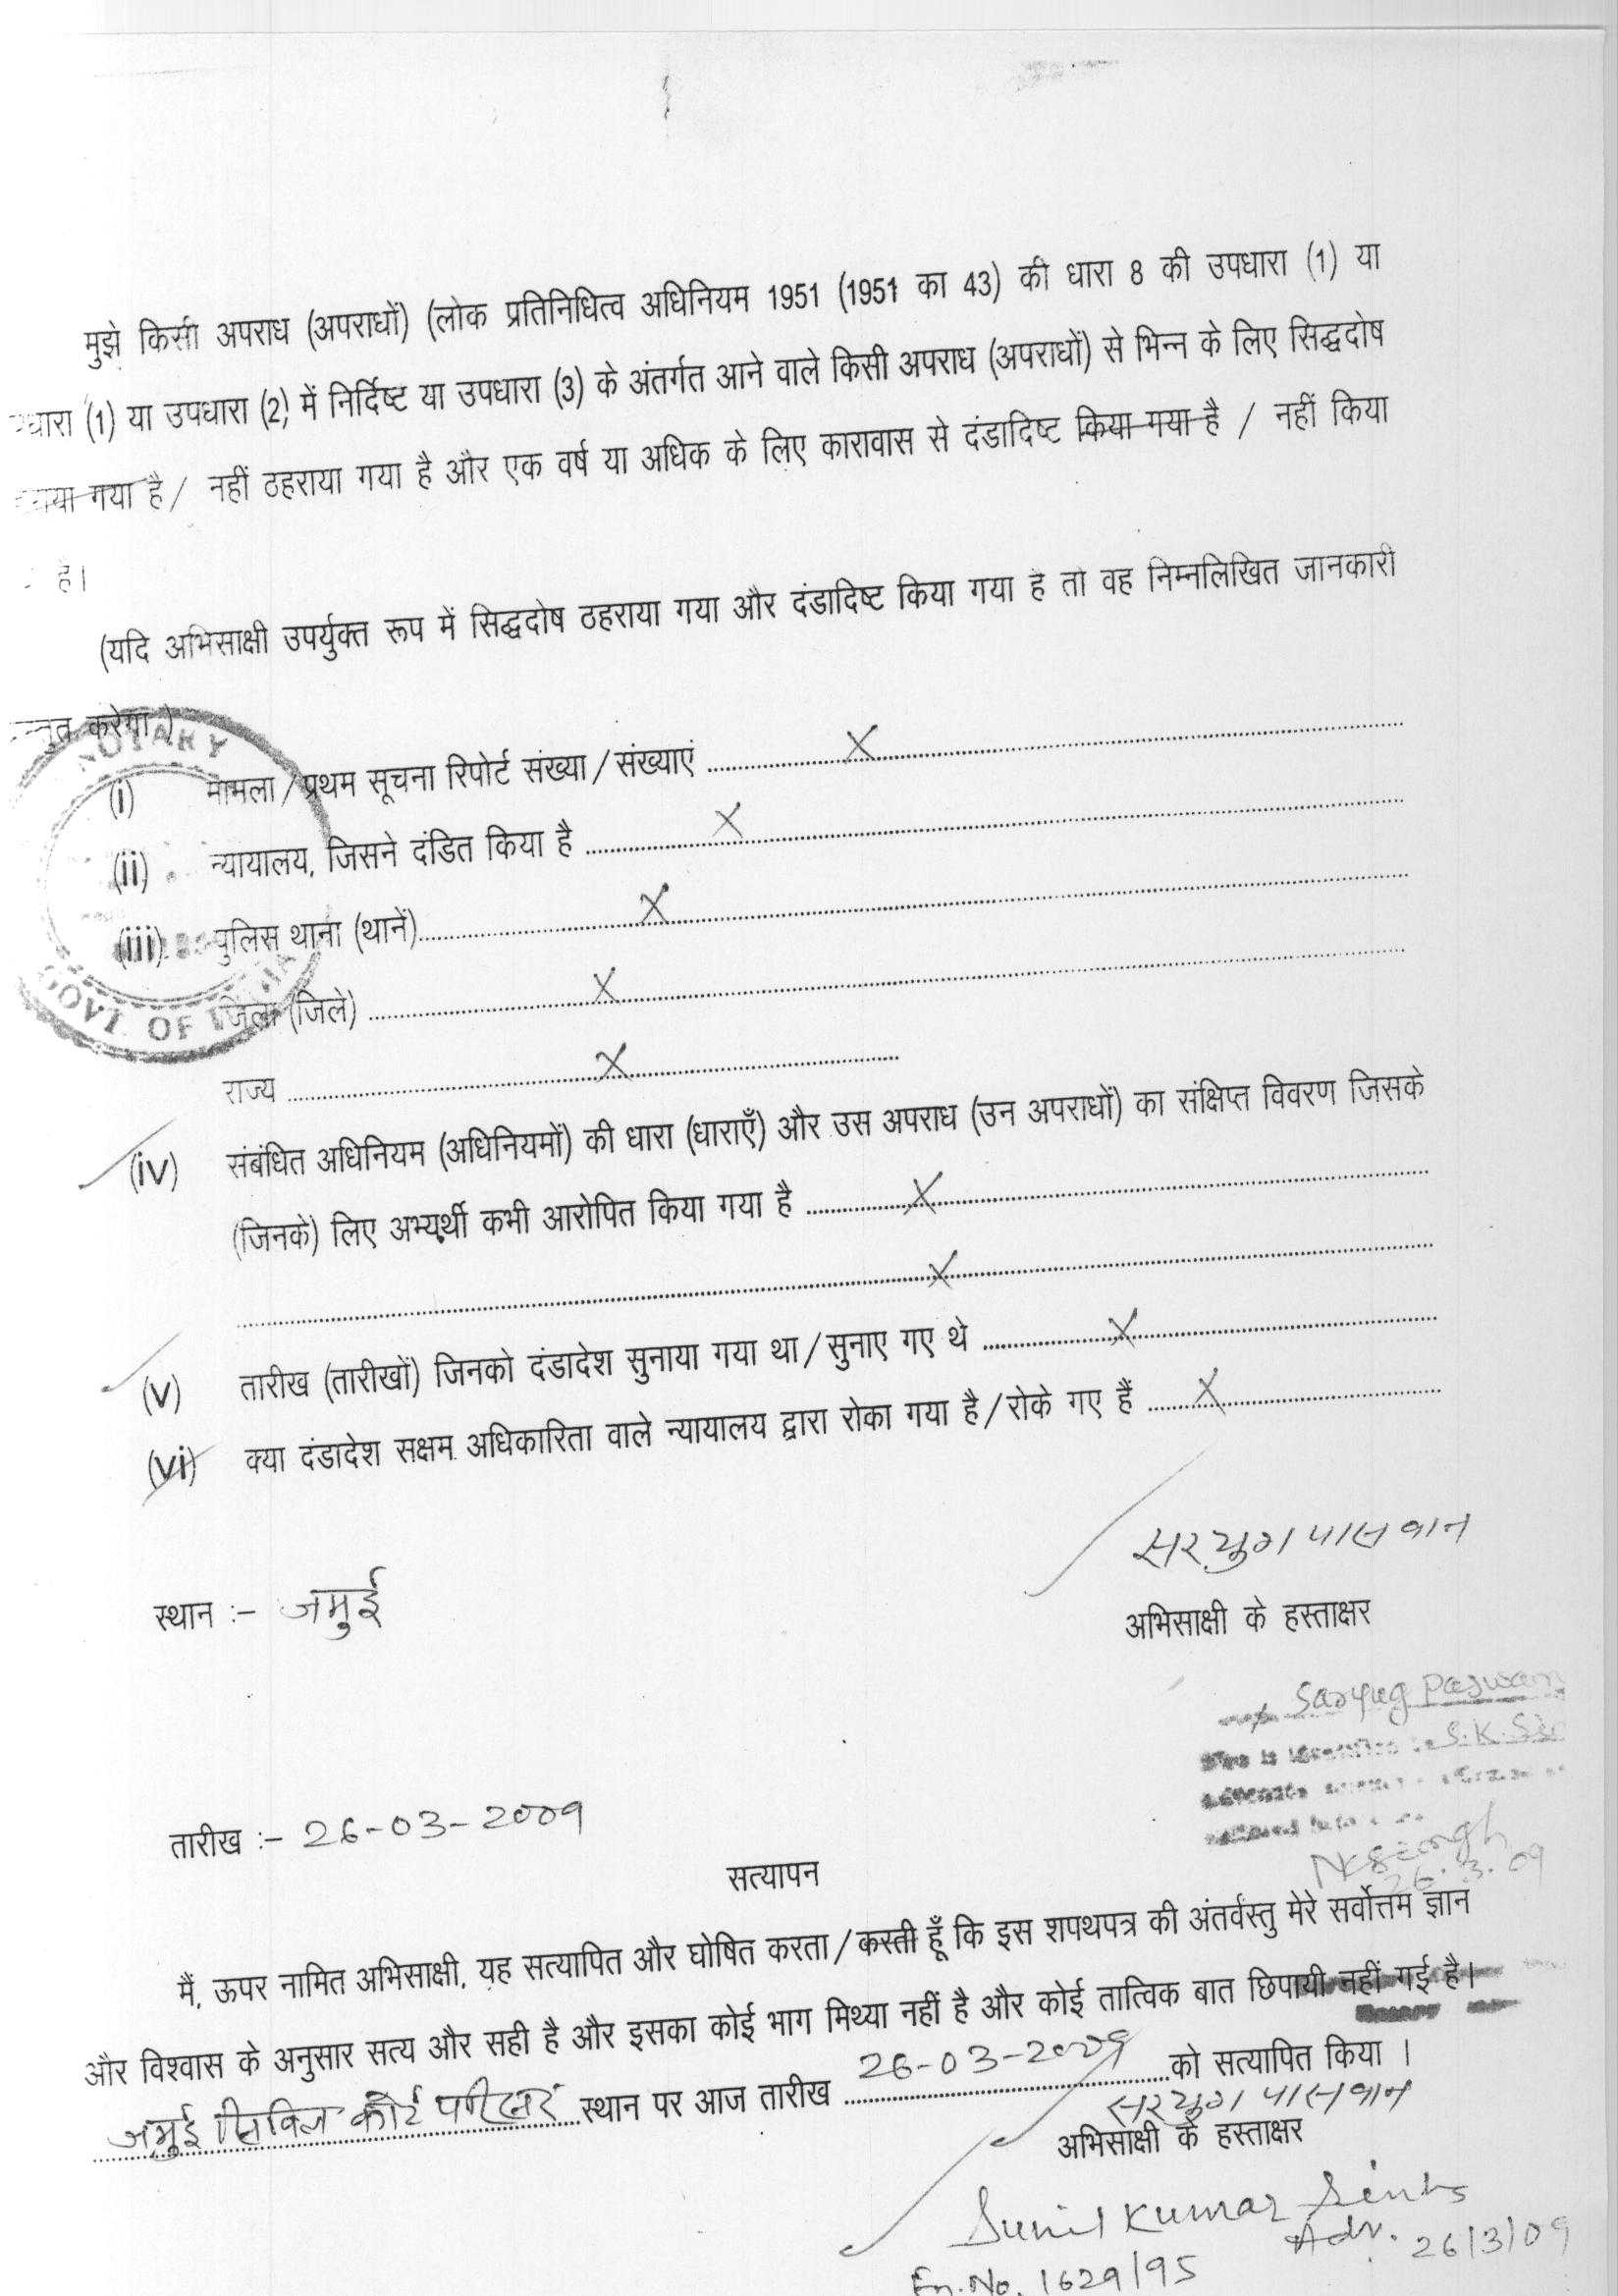 मुझे किसी अपराध (अपराधों) (लोक प्रतिनिधित्व अधिनियम 1951 (1951 का 43) की धारा 8 की उपधारा (1) या
धारा (1) या उपधारा (2) में निर्दिष्ट या उपधारा (3) के अंतर्गत आने वाले किसी अपराध (अपराधों) से भिन्न के लिए सिद्धदोष
गया है / नहीं ठहराया गया है और एक वर्ष या अधिक के लिए कारावास से दंडादिष्ट किया गया है / नहीं किया
है।
(यदि अभिसाक्षी उपर्युक्त रूप में सिद्धदोष ठहराया गया और दंडादिष्ट किया गया है तो वह निम्नलिखित जानकारी
करेगा)
NOTARY
(i) मामला / प्रथम सूचना रिपोर्ट संख्या / संख्याएं .......... X
(ii) न्यायालय, जिसने दंडित किया है .......... X
(iii) पुलिस थाना (थानें) .......... X
जिला (जिले) .......... X
GOVT. OF INDIA
राज्य .......... X
(iv) संबंधित अधिनियम (अधिनियमों) की धारा (धाराएँ) और उस अपराध (उन अपराधों) का संक्षिप्त विवरण जिसके
(जिनके) लिए अभ्यर्थी कभी आरोपित किया गया है .......... X
.......... X
(v) तारीख (तारीखों) जिनको दंडादेश सुनाया गया था / सुनाए गए थे .......... X
(vi) क्या दंडादेश सक्षम अधिकारिता वाले न्यायालय द्वारा रोका गया है / रोके गए हैं .......... X
सरयुग पासवान
स्थान :- जमुई
अभिसाक्षी के हस्ताक्षर
Saryug Paswan
who is identified S.K.
तारीख :- 26-03-2009
N K Singh
26.3.09
सत्यापन
मैं, ऊपर नामित अभिसाक्षी, यह सत्यापित और घोषित करता / करती हूँ कि इस शपथपत्र की अंतर्वस्तु मेरे सर्वोत्तम ज्ञान
और विश्वास के अनुसार सत्य और सही है और इसका कोई भाग मिथ्या नहीं है और कोई तात्विक बात छिपायी नहीं गई है।
जमुई सिविल कोर्ट परिसर स्थान पर आज तारीख 26-03-2009 को सत्यापित किया ।
सरयुग पासवान
अभिसाक्षी के हस्ताक्षर
Sunil Kumar Sinha
Adv. 26/3/09
En. No. 1629/95